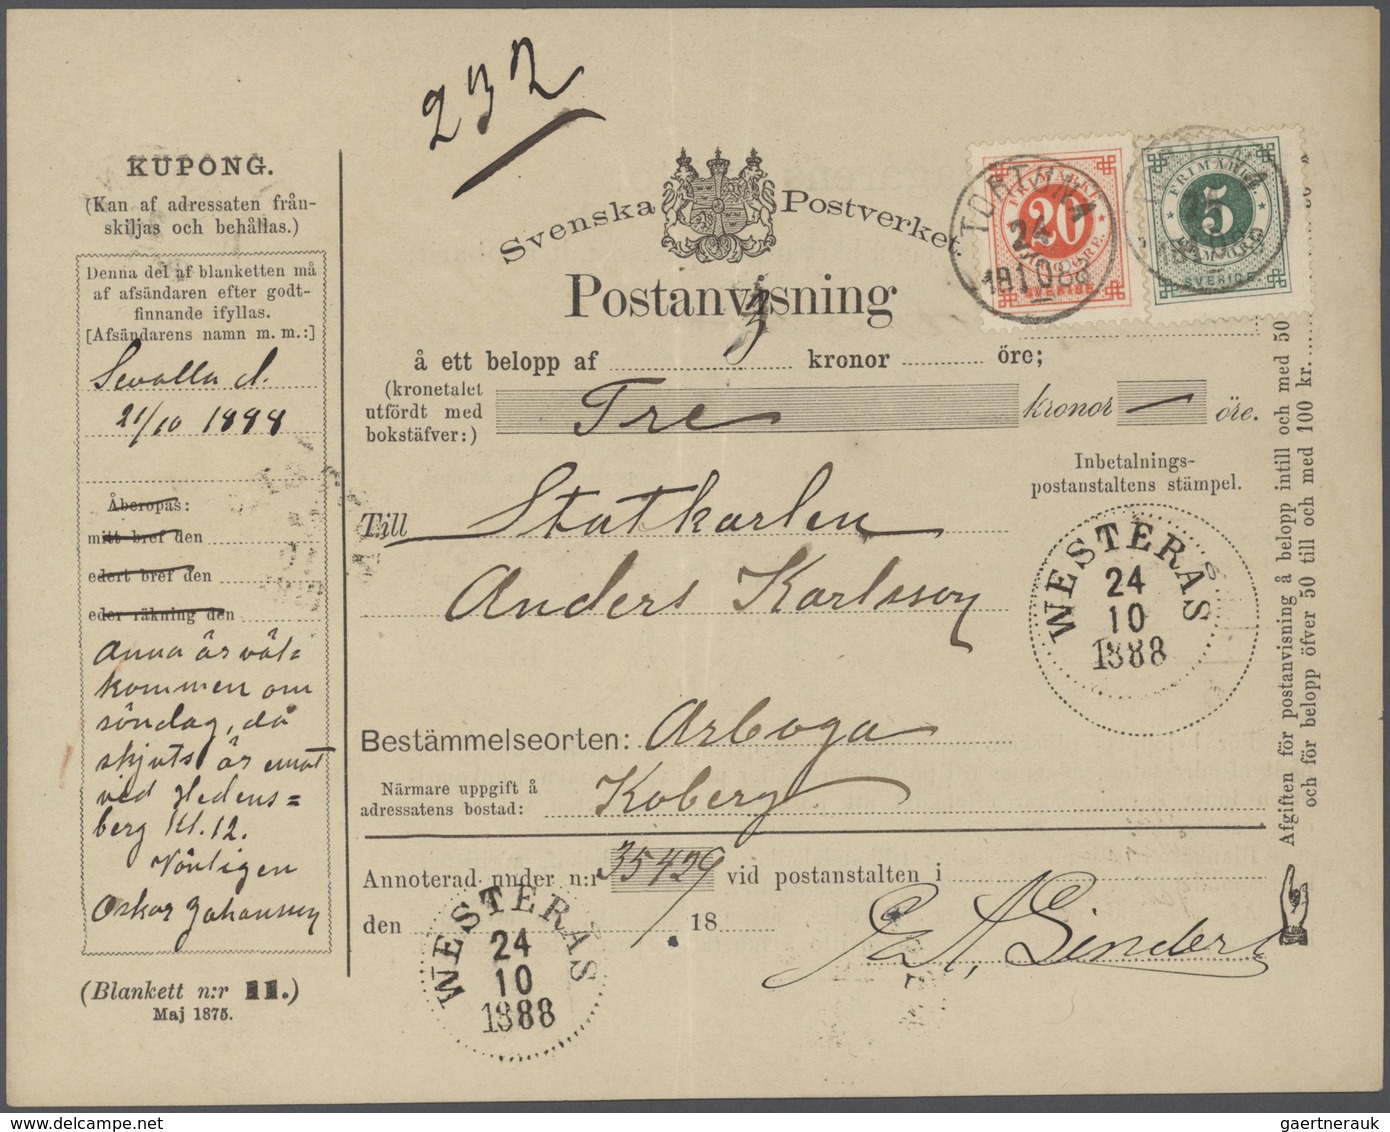 232
KUPONG.
(Kan af adressaten från-
skiljas och behållas.)
Denna del af blanketten må
af afsändaren efter godt-
finnande ifyllas.
[Afsändarens namn m. m.:]
Sevalla d.
21/10 1888
Åberopas:
mitt bref den
edert bref den
eder räkning den
Anna är väl-
kommen om
söndag, då
skjuts är emot
ved Hedens=
berg Kl. 12.
Vänligen
Oskar Johansson
(Blankett n:r 11.)
Maj 1875.
Svenska Postverket
Postanvisning
å ett belopp af 3 kronor öre;
(kronetalet
utfördt med
bokstäfver:)
Tre kronor — öre.
Till Statkarlen
Anders Karlsson
Bestämmelseorten: Arboga
Närmare uppgift å
adressatens bostad: Koberg
Annoterad under n:r 35429 vid postanstalten i
den 18
WESTERÅS
24
10
1888
TORTUNA
24
10
188
FRIMÄRKE
20
ÖRE.
SVERIGE
FRIMÄRKE
5
SVERIGE
Inbetalnings-
postanstaltens stämpel.
WESTERÅS
24
10
1888
Afgiften för postanvisning å belopp intill och med 50
och för belopp öfver 50 till och med 100 kr.
gaertnerauk